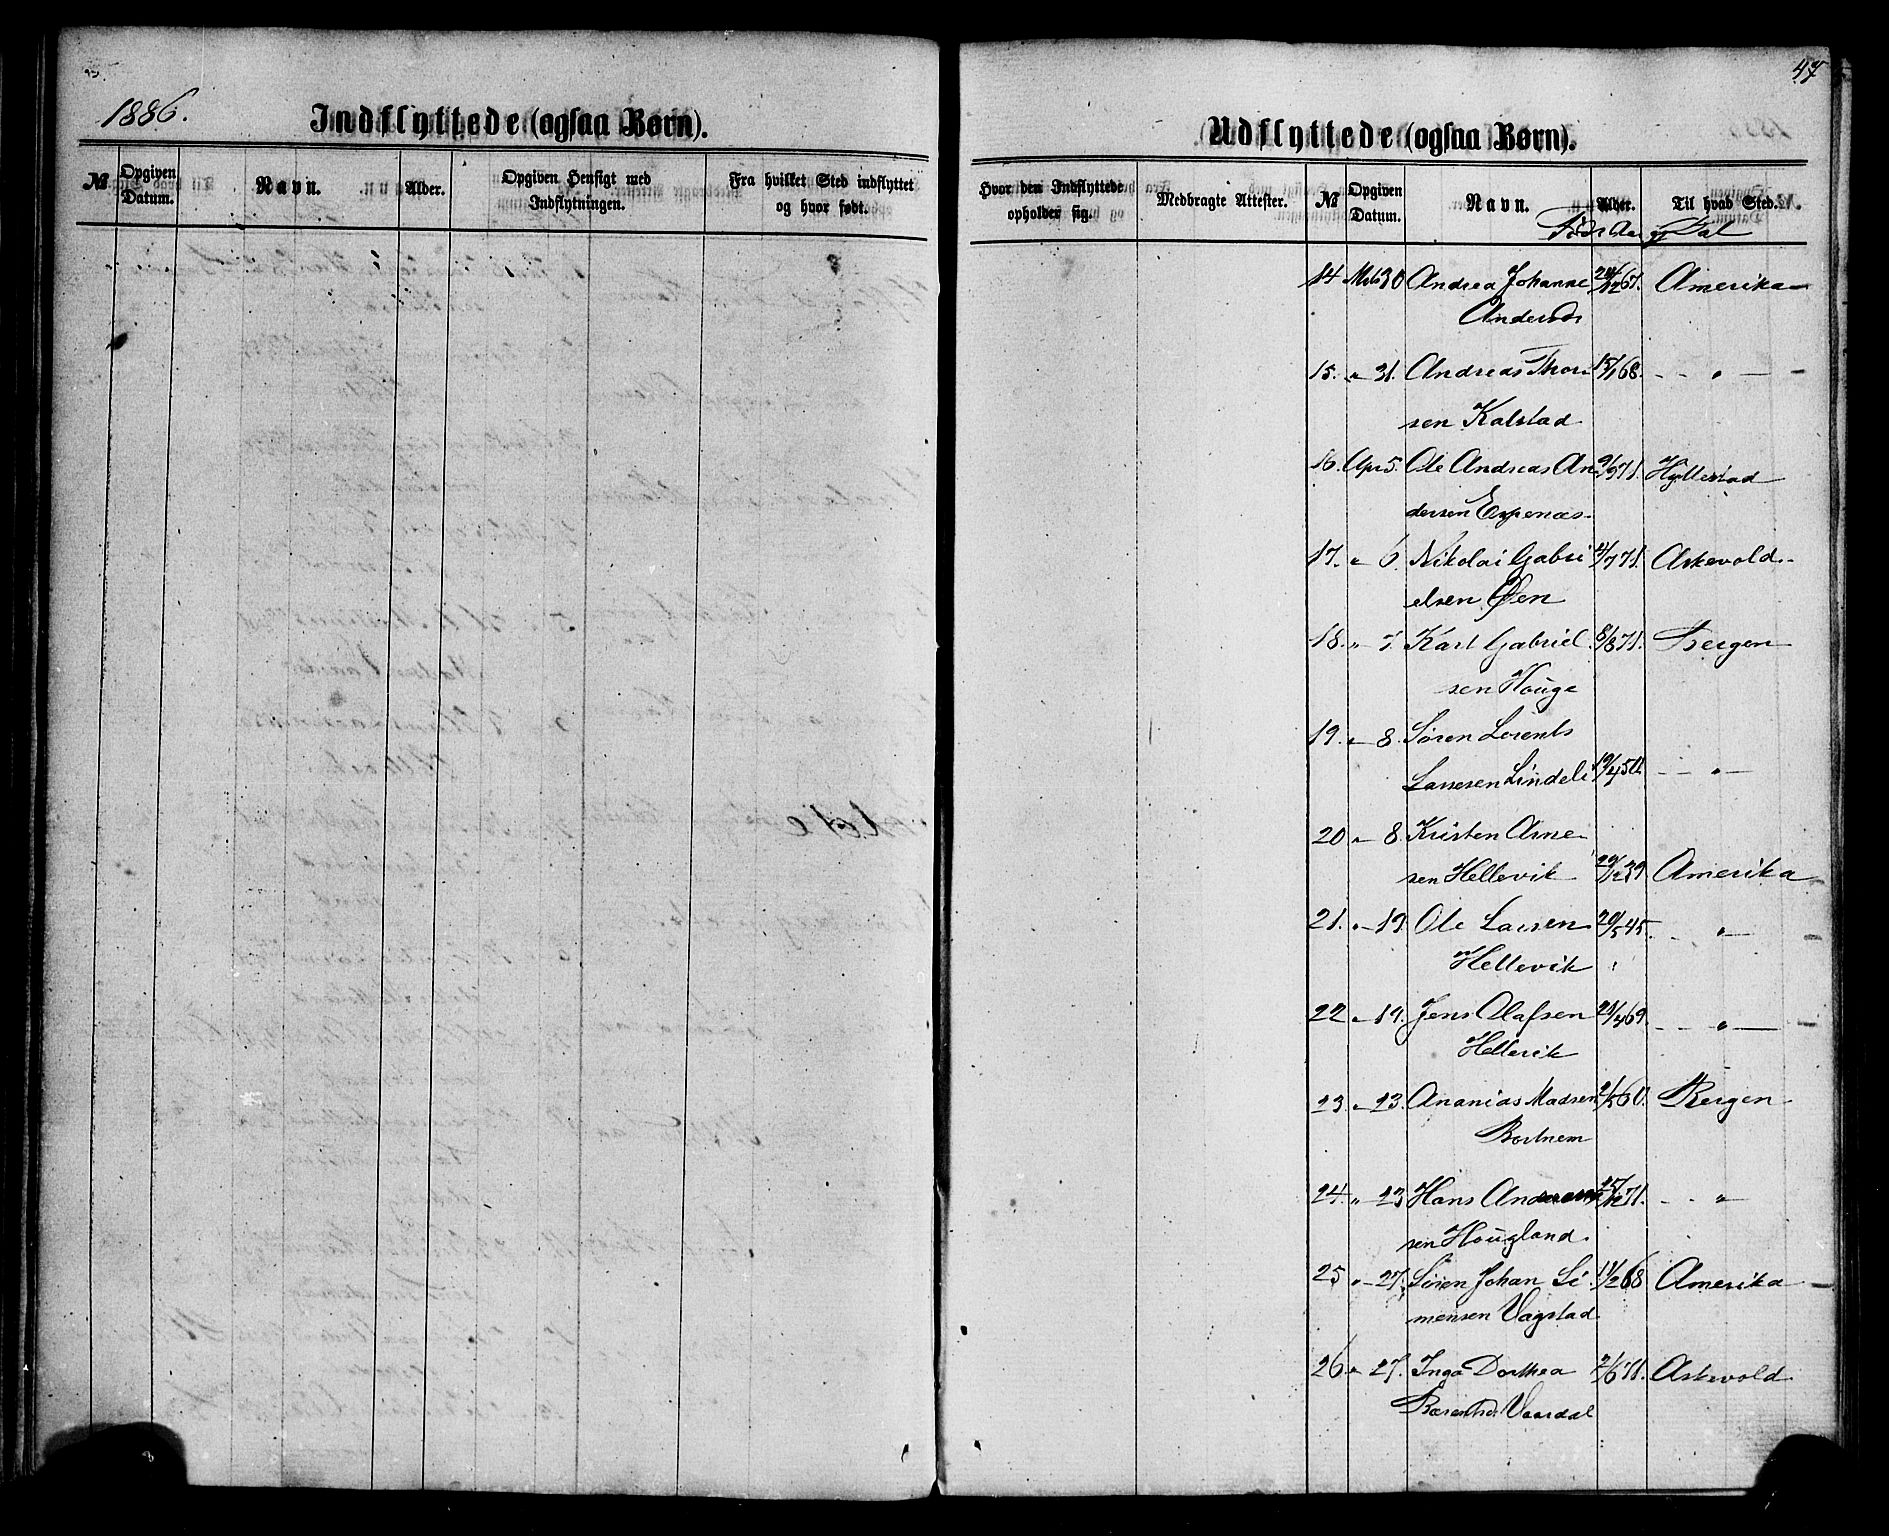 1886.
Indflyttede (ogsaa Børn).
№
Opgiven Datum.
Navn.
Alder.
Opgiven Hensigt med Indflytningen.
Fra hvilket Sted indflyttet og hvor født.
47
Udflyttede (ogsaa Børn).
Hvor den Indflyttede opholder sig.
Medbragte Attester.
№
Opgiven Datum.
Navn.
Alder.
Til hvad Sted.
14 Mrts 30 Andrea Johanne 24/12 67. Amerika
Andersdr
15. " 31. Andreas Thor- 15/1 68. — " —
sen Kalstad
16. Apr 5. Ole Andreas An 9/9 71. Hyllestad
dersen Espenæs
17. " 6. Nikolai Gabri 4/7 71. Askevold.
elsen Øen
18. " 7. Karl Gabriel 8/8 71. Bergen
sen Houge
19. " 8. Søren Lorents
Larsen Lindeli 19/4 50. — " —
20 " 8. Kristen Arne
sen Hellevik 29/12 39 Amerika
21. " 19. Ole Larsen 20/5 45. — " —
Hellevik
22 " 19. Jens Olafsen 23/4 69. — " —
Hellevik
23. " 23. Ananias Madsen 2/5 60. Bergen
Bortnem
24. " 23 Hans Andersen 27/12 71. — " —
sen Hougland.
25 " 27. Søren Johan Si 14/2 68 Amerika
mensen Vagstad
26. " 27. Inga Dorthea 2/6 71. Askevold
Berentsdr. Vaardal